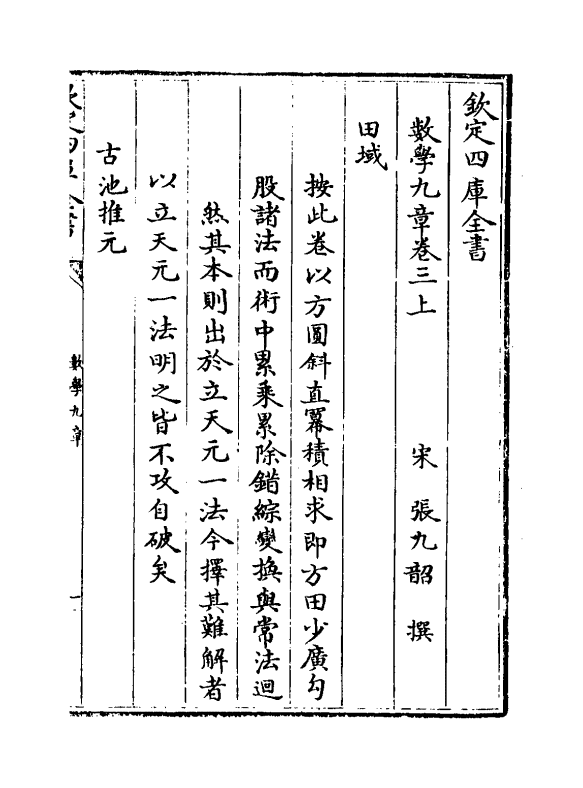 欽定四庫全書
數學九章卷三上　宋　張九韶　撰
田域
按此卷以方圓斜直冪積相求即方田少廣勾
股諸法而術中累乘累除錯綜變換與常法迥
然其本則出於立天元一法今擇其難解者
以立天元一法明之皆不攻自破矣
古池推元
數學九章
一